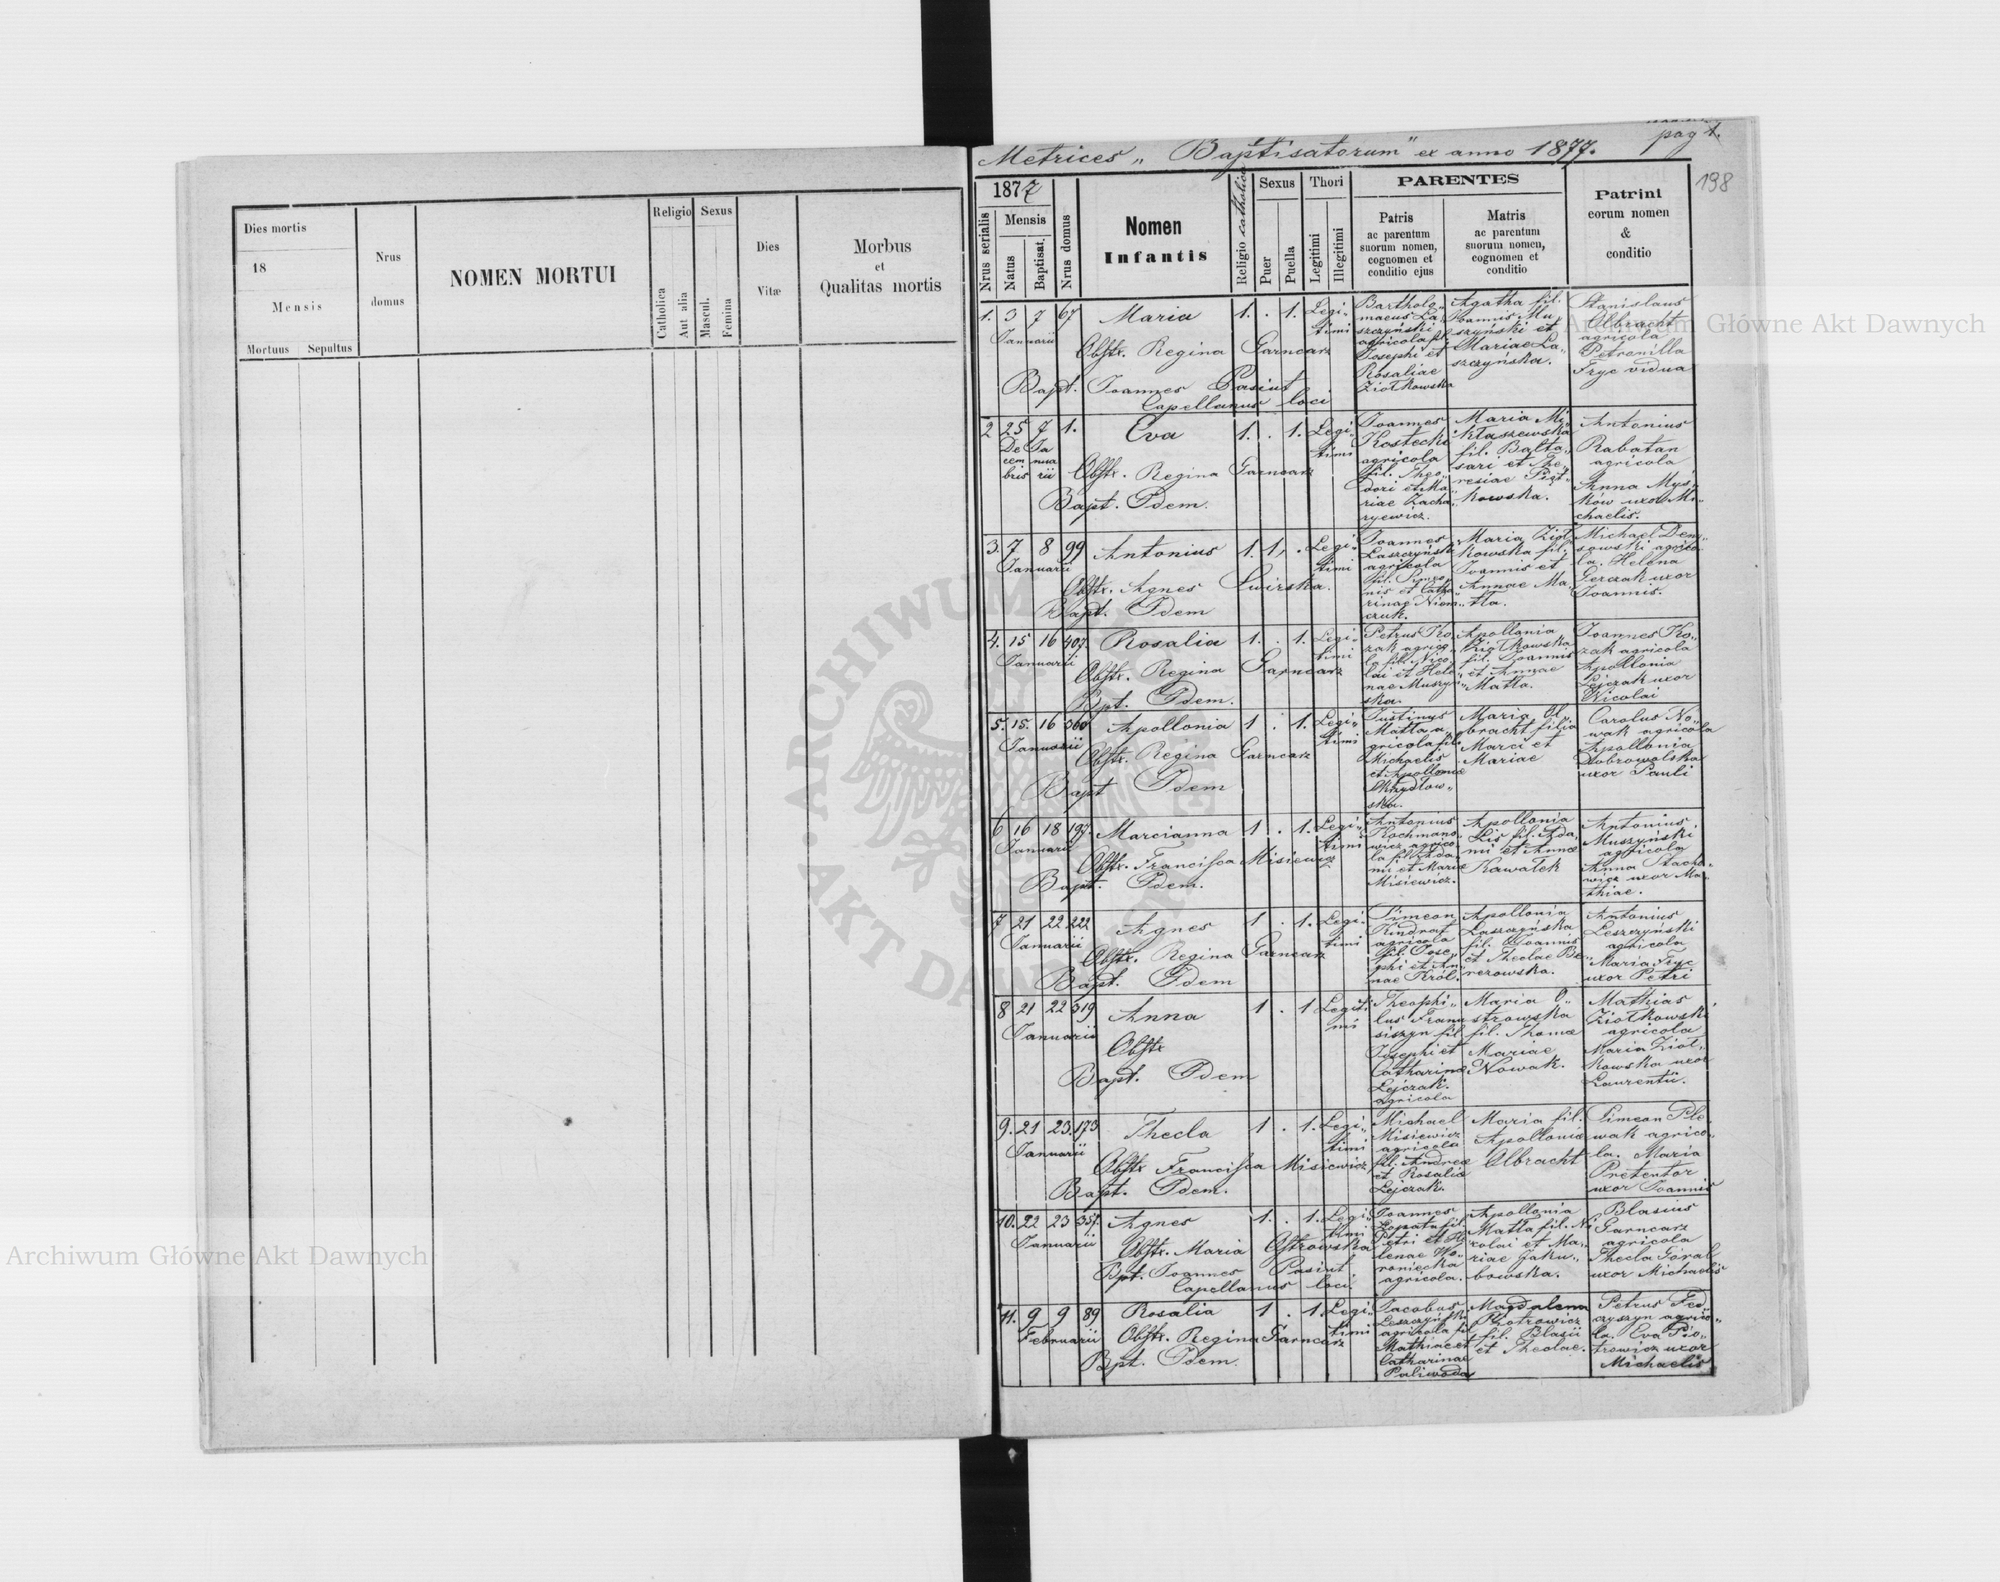 Dies mortis
18
Mensis
Mortuus Sepultus
Nrus
domus
NOMEN MORTUI
Religio
Catholica
Aut alia
Sexus
Mascul.
Femina
Dies
Vitæ
Morbus
et
Qualitas mortis
pag 1.
Metrices „Baptisatorum" ex anno 1877.
198
1877
Nrus serialis
Mensis
Natus
Baptisat.
Nrus domus
Nomen
Infantis
Religio catholica
Sexus
Puer
Puella
Thori
Legitimi
Illegitimi
PARENTES
Patris
ac parentum
suorum nomen,
cognomen et
conditio ejus
Matris
ac parentum
suorum nomen,
cognomen et
conditio
Patrini
eorum nomen
&
conditio
1. 3 7 67 Maria 1. . 1. Legi-
timi
Januarii
Obstr. Regina Garncarz
Bapt. Joannes Pasiut
Capellanus loci
Bartholo-
maeus La-
szczyński
agricola fil.
Josephi et
Rosaliae
Ziołkowska
Agatha fil.
Joannis Mu-
szyński et
Mariae La-
szczyńska.
Stanislaus
Olbracht
agricola
Petronilla
Fryc vidua
2 25 7 1. Eva 1. . 1. Legi-
timi
De Ja
cem nua
bris rii
Obstr. Regina Garncarz
Bapt. Idem.
Joannes
Kostecki
agricola
fil. Theo-
dori et Ma-
riae Zacha-
ryewicz.
Maria Mi-
kłaszewska
fil. Balta-
sari et The-
resiae Pięt-
kowska.
Antonius
Rabatan
agricola
Anna Myś-
ków uxor Mi-
chaelis.
3. 7 8 99 Antonius 1. 1. . Legi-
timi
Januarii
Obstr. Agnes
Bapt. Idem
Joannes
Laszczyński
agricola
fil. Simeo-
nis et Catha-
rinae Niem-
czuk.
Maria Zioł-
kowska fil.
Joannis et
Annae Ma-
tła.
Michael Dem-
sowski agrico-
la. Helena
Gerczak uxor
Joannis.
4. 15 16 407. Rosalia 1. . 1. Legi-
timi
Januarii
Obstr. Regina Garncarz
Bpt. Idem.
Petrus Ko-
zak agrico-
la fil. Nico-
lai et Hele-
nae Muszyń-
ska.
Apollonia
Ziołkowska
fil. Joannis
et Annae
Matła.
Joannes Ko-
zak agricola
Apollonia
Lejczak uxor
Nicolai
5. 15. 16 360 Apollonia 1 . 1. Legi-
timi
Januarii
Obstr. Regina Garncarz
Bapt Idem
Justinus
Matła a-
gricola fil.
Michaelis
et Apolloniæ
Skrydłow-
ska.
Maria Ol-
bracht filia
Marci et
Mariae
Carolus No-
wak agricola
Apollonia
Dobrowolska
uxor Pauli
6 16 18 197. Marcianna 1 . 1. Legi-
timi
Januarii
Obstr. Francisca Misiewicz
Bapt. Idem.
Antonius
Kochmano-
wicz agrico-
la fil. Ada-
mi et Mariæ
Misiewicz.
Apollonia
Lis fil. Ada-
mi et Annæ
Kawałek
Antonius
Muszyński
agricola
Anna Stacho-
wicz uxor Ma-
thiae.
7 21 22 222 Agnes 1 . 1. Legi-
timi
Januarii
Obstr. Regina Garncarz
Bapt. Idem
Simeon
Kindrat
agricola
fil. Jose-
phi et An-
nae Król.
Apollonia
Laszczyńska
fil. Joannis
et Theclae Be-
nerowska.
Antonius
Leszczyński
agricola
Maria Fryc
uxor Petri
8 21 22 319 Anna 1 . 1 Legiti
mi
Januarii
Obstr
Bapt. Idem
Theophi-
lus Franu
siszyn fil
Josephi et
Catharinæ
Lejczak.
agricola
Maria O-
strowska
fil. Thomæ
Mariae
Nowak.
Mathias
Ziołkowski
agricola
Maria Zioł-
kowska uxor
Laurentii.
9. 21 23. 173 Thecla 1 . 1. Legi-
timi
Januarii
Obstr Francisca Misiewicz
Bapt. Idem.
Michael
Misiewicz
agricola
fil. Andreæ
et Rosaliæ
Lejczak.
Maria fil.
Apolloniæ
Olbracht
Simeon Ple
wak agrico-
la. Maria
Pretentor
uxor Joannis
10. 22 23 357. Agnes 1. . 1. Legi-
timi
Januarii
Obstr. Maria Ostrowska
Bpt. Joannes Pasiut
Capellanus loci.
Joannes
Łopata fil.
Petri et He-
lenae Wo-
roniecka
agricola.
Apollonia
Matła fil. Ni
colai et Ma-
riae Jaku-
bowska.
Blasius
Garncarz
agricola
Thecla Góral
uxor Michaelis
11. 9 9 89 Rosalia 1 . 1. Legi-
timi
Februarii
Obstr. Regina Garncarz
Bpt. Idem.
Jacobus
Leszczyński
agricola fil
Mathiae et
Catharinae
Paliwoda
Magdalena
Piotrowicz
fil. Blasii
et Theclae.
Petrus Fed
czyszyn agrico-
la. Eva Pio-
trowicz uxor
Michaelis
Archiwum Główne Akt Dawnych
Archiwum Główne Akt Dawnych
ARCHIWUM GŁÓWNE
AKT DAWNYCH